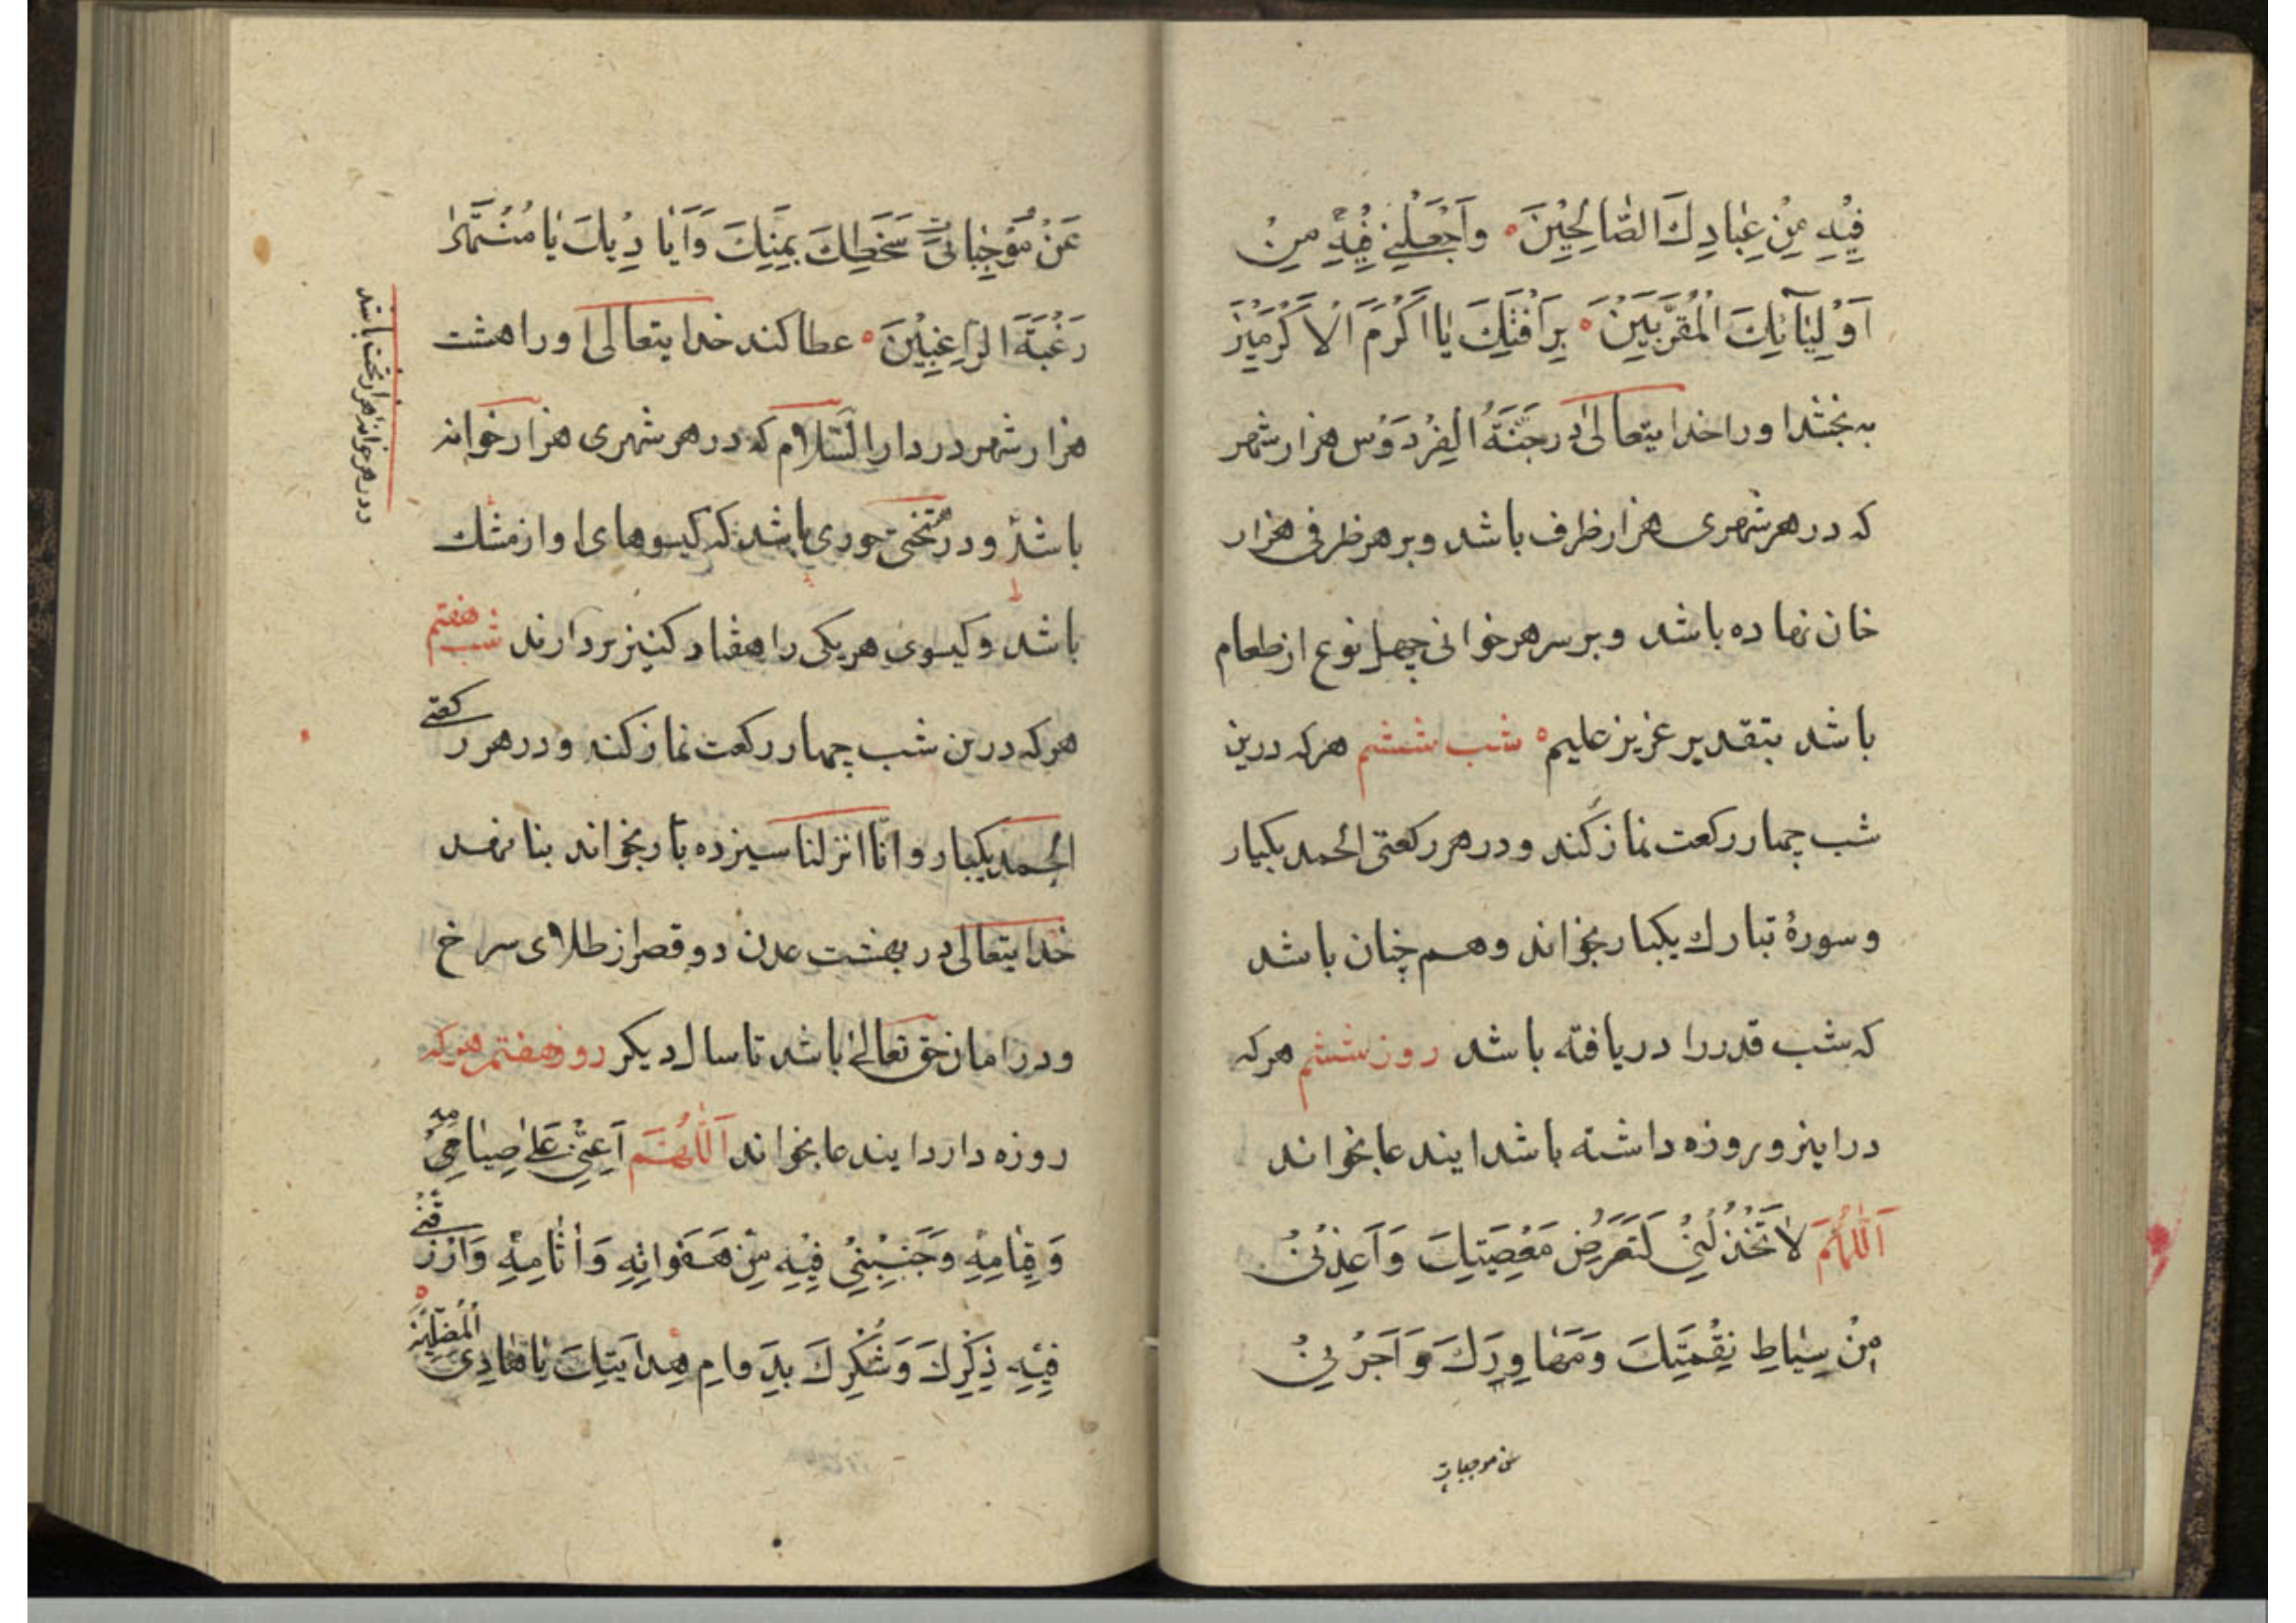 فِيْهِ مِنْ عِبَادِكَ الصَّالِحِيْنَ وَاَجْعَلْنِي فِيْهِ مِنْ
اَوْلِيَآئِكَ الْمُقَرَّبِيْنَ بِرَافَتِكَ يَا اَكْرَمَ الْاَكْرَمِيْنَ
به بخشد او را خدایتعالی در جَنَّةُ الْفِرْدَوْس هزار شهر
که در هر شهری هزار ظرف باشد و بر هر ظرفی هزار
خان نهاده باشد و بر سر هر خوانی چهل نوع از طعام
باشد بتقدیر عزیز علیم شب ششم هرکه درین
شب چهار رکعت نماز کند و در هر رکعتی الحمد یکبار
و سورهٔ تبارك یکبار بخواند و هم چنان باشد
که شب قدر را دریافته باشد روز ششم هرکه
در اینروز روزه داشته باشد ایندعا بخواند
اَللّٰهُمَّ لَا تَخْذُلْنِيْ لِتَعَرُّضِ مَعْصِيَتِكَ وَاَعِذْنِيْ
مِنْ سِيَاطِ نِقْمَتِكَ وَمَهَاوِرِكَ وَاَجِرْنِيْ
من موجبات
عَنْ مُوْجِبَاتِ سَخَطِكَ بِمَنِّكَ وَاَيَادِيْكَ يَا مُنْتَهَىٰ
رَغْبَةَ الرَّاغِبِيْنَ عطا کند خدایتعالی او را هشت
هزار شهر در دار السّلام که در هر شهری هزار خوانه
باشد و در تختی حوری باشد که گیسوهای او از مشك
و در هر خوانه هزار تخت باشد
باشد و گیسوی هر یکی را هفتاد کنیز بردارند شب هفتم
هرکه درین شب چهار رکعت نماز کند و در هر رکعتی
الحمد یکبار و انّا انزلنا سیزده بار بخواند بنا نهد
خدایتعالی در بهشت عدن دو قصر از طلای سرخ
و در امان حق تعالیٰ باشد تا سال دیکر روز هفتم هرکه
روزه دارد ایندعا بخواند اَللّٰهُمَّ اَعِنِّيْ عَلیٰ صِيَامِهِ
وَقِيَامِهِ وَجَنِّبْنِيْ فِيْهِ مِنْ هَفَوَاتِهِ وَاٰثَامِهِ وَارْزُقْنِي
فِيْهِ ذِكْرَكَ وَشُكْرَكَ بِدَوامِ هِدَايَتِكَ يَا هَادِيَ الْمُضِلِّيْنَ